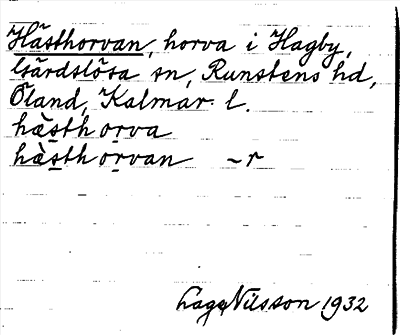 Hästhorvan, horva i Hagby,
Gärdslösa sn, Runstens hd,
Öland, Kalmar l.
hæ̀sth orva
hæ̀sth orvan ~r
Lage Nilsson 1932